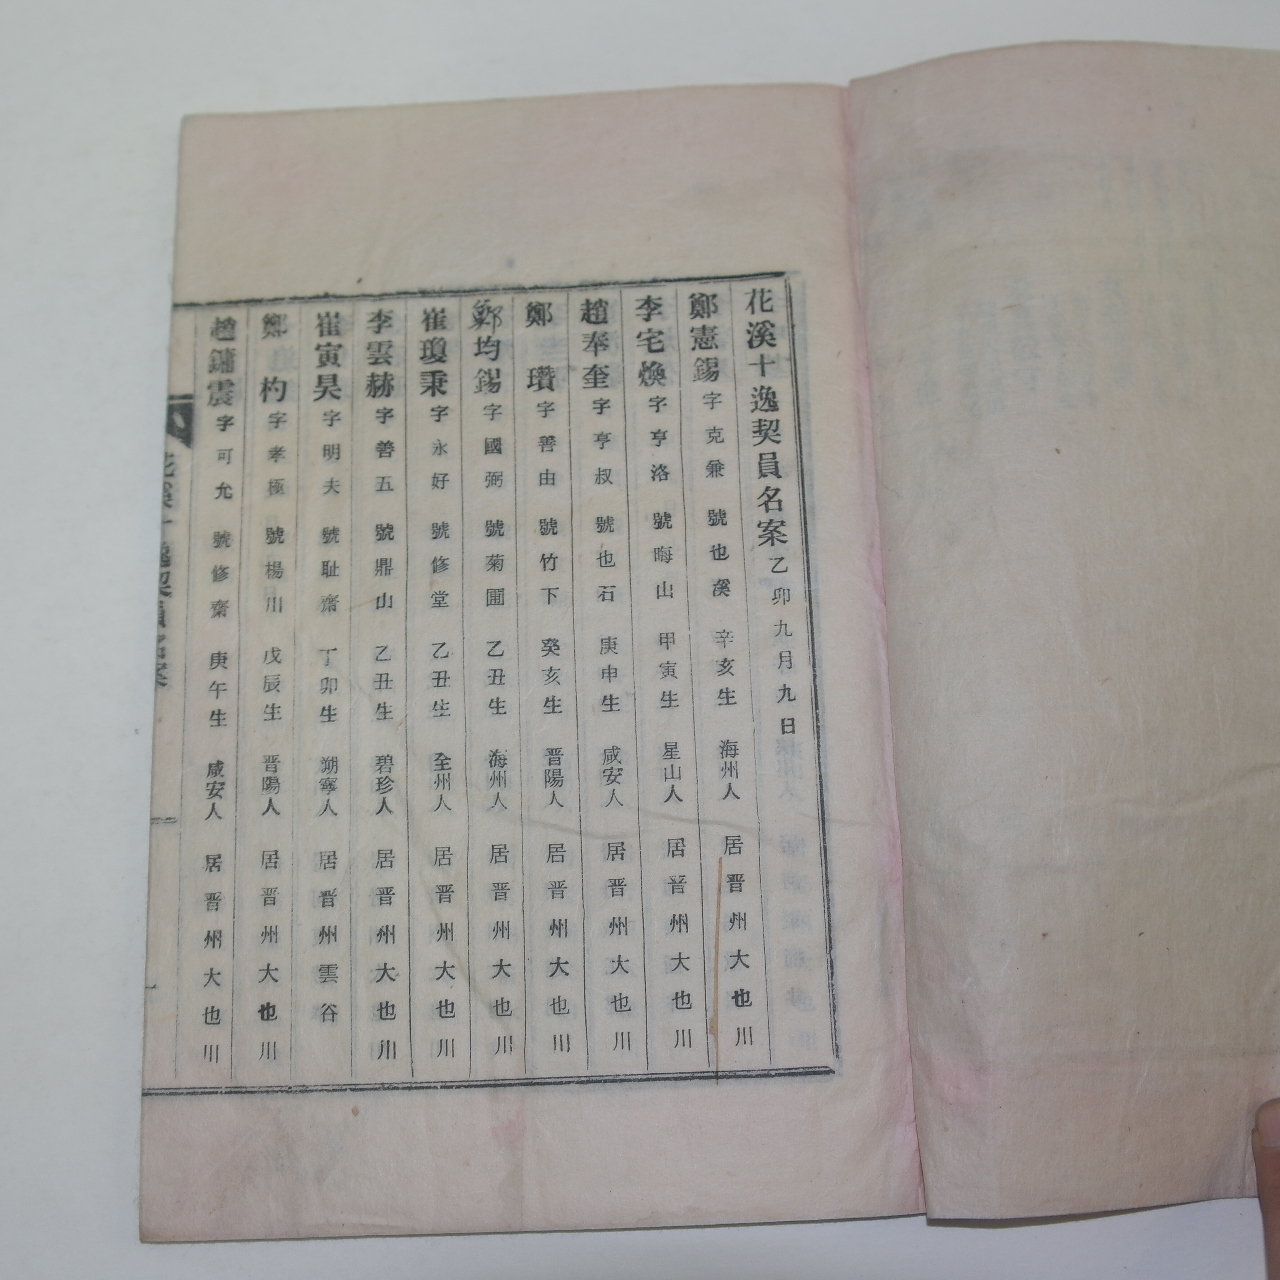 花溪十逸契員名案 乙卯九月九日
鄭憲錫 字克兼 號也溪 辛亥生 海州人 居晋州大也川
李宅煥 字亨洛 號晦山 甲寅生 星山人 居晋州大也川
趙奉奎 字亨叔 號也石 庚申生 咸安人 居晋州大也川
鄭瓚 字善由 號竹下 癸亥生 晋陽人 居晋州大也川
鄭均錫 字國弼 號菊圃 乙丑生 海州人 居晋州大也川
崔瓊秉 字永好 號修堂 乙丑生 全州人 居晋州大也川
李雲赫 字善五 號鼎山 乙丑生 碧珍人 居晋州大也川
崔寅昊 字明夫 號耻齋 丁卯生 朔寧人 居晋州雲谷
鄭杓 字孝極 號楊川 戊辰生 晋陽人 居晋州大也川
趙鏞震 字可允 號修齋 庚午生 咸安人 居晋州大也川
花溪十逸契員名案